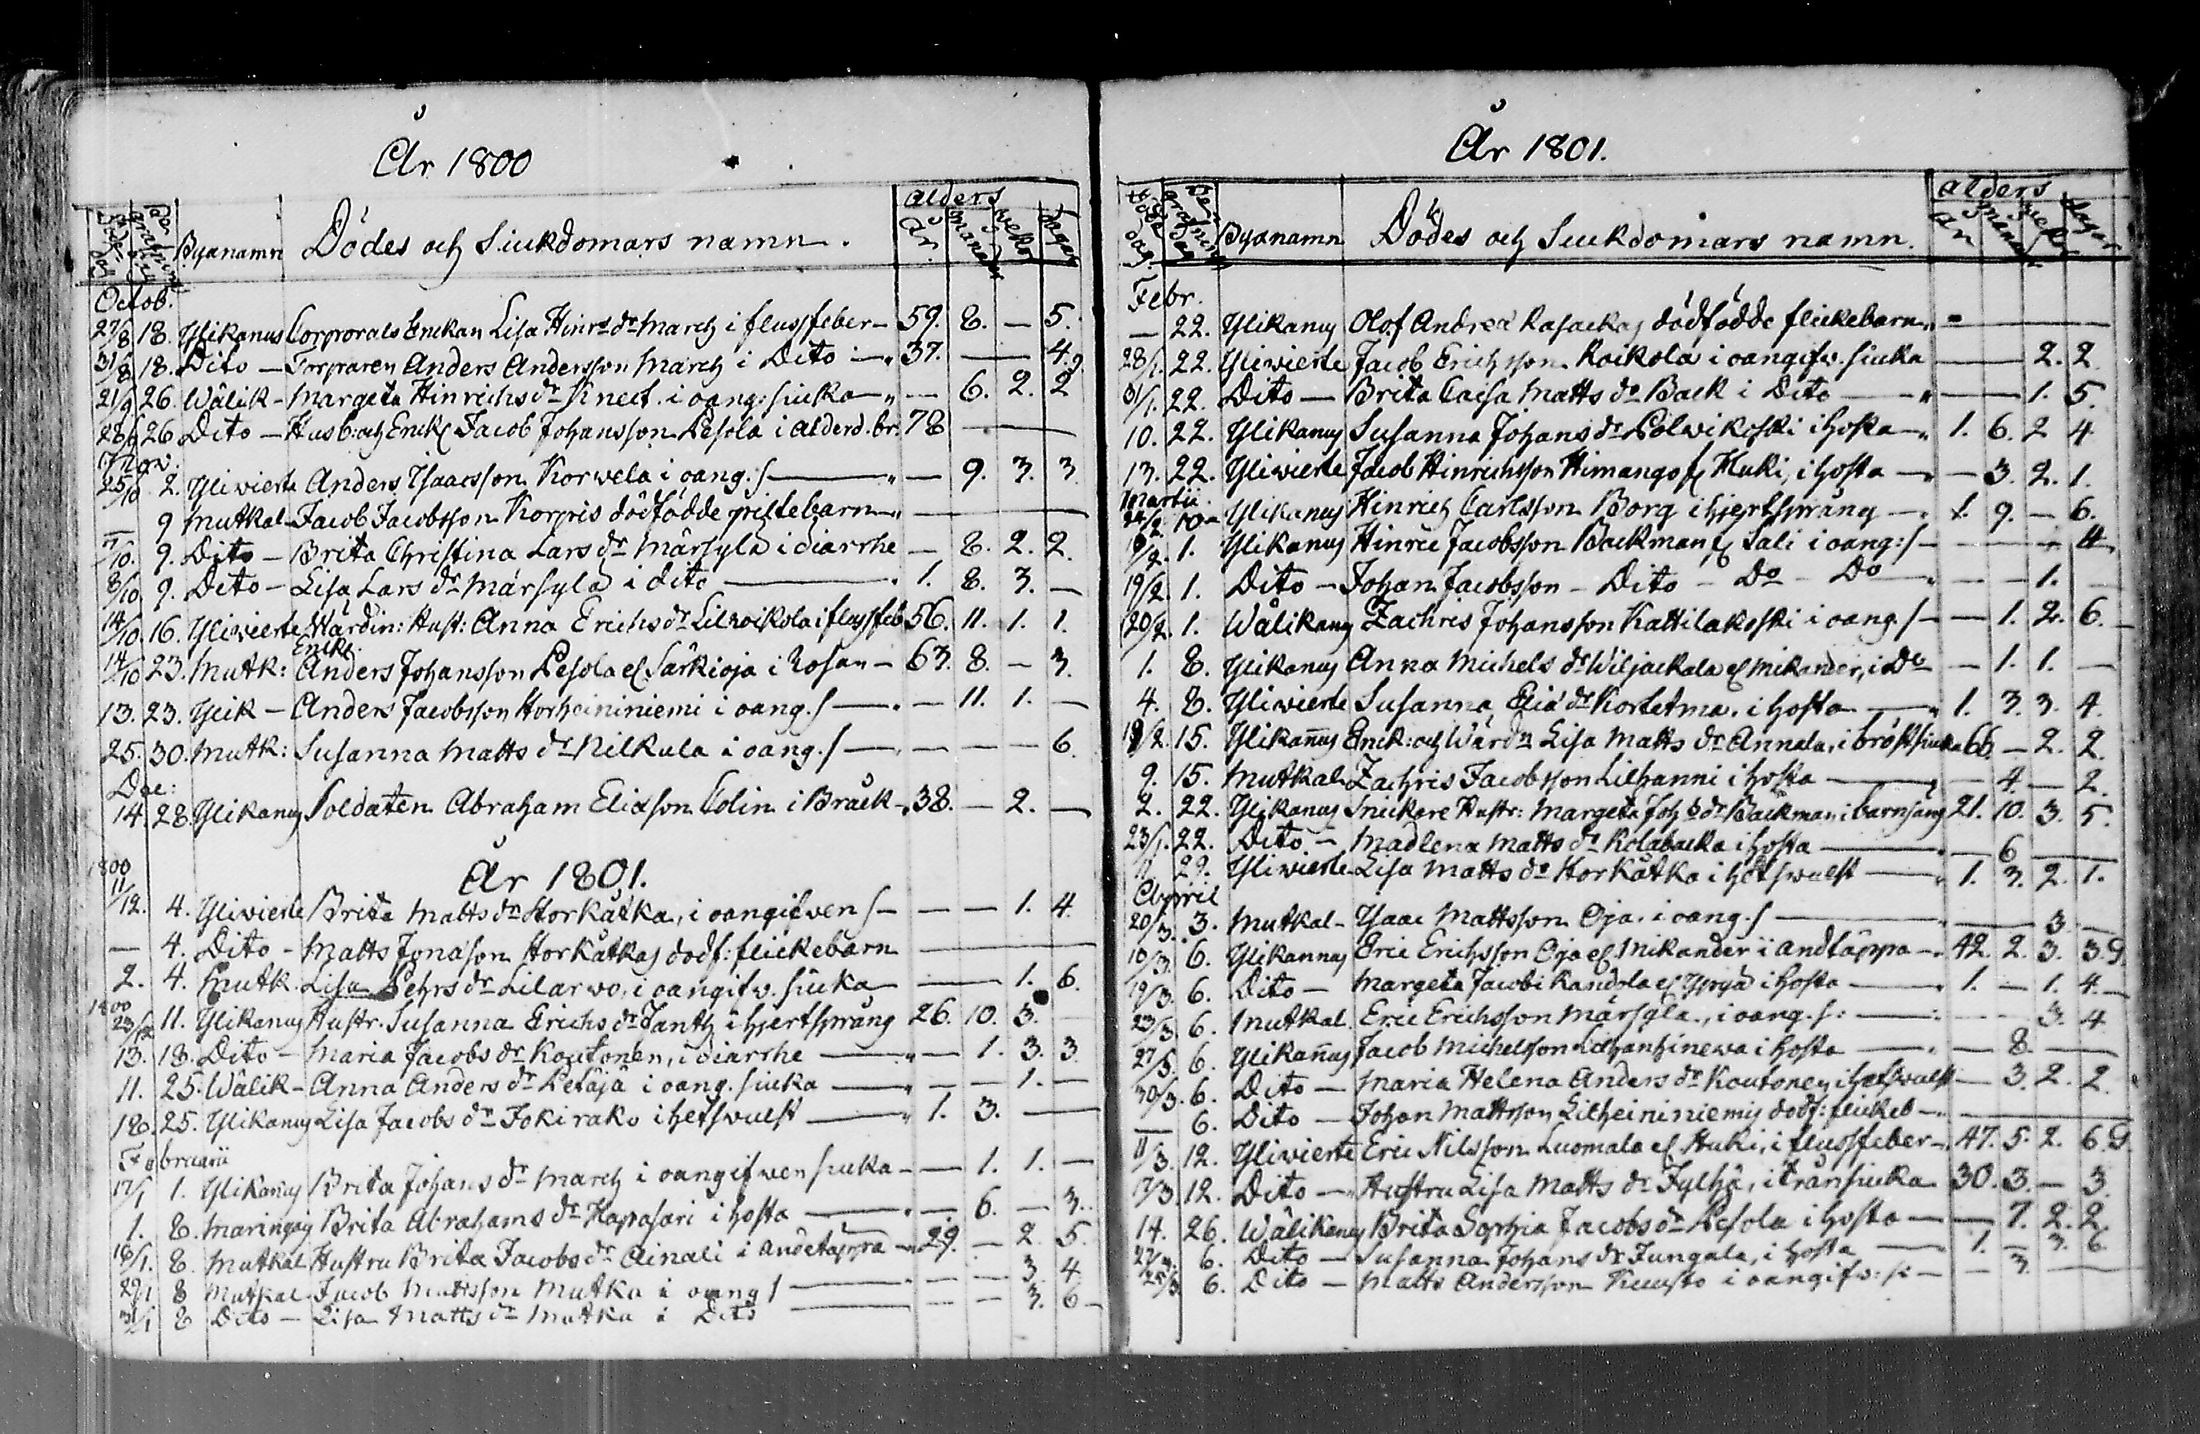 År 1800
alders
Döde dag begrafning dag Byanamn Dödes och Siukdomars namn. År. månader vekor dagar
Octob.
27/8 18. Ylikanus Corporals Enckan Lisa Hinrs dr March i flussfeber — 59. 8. — 5.
31/8 18. Dito — Torparen Anders Andersson March i Dito — 37. — 4.
21/9 26. Wälik — Margeta Hinrichs dr Knect. i oang: siuka — — 6. 2. 2
26. Dito — Husb: och Enckl Jacob Johansson Pesola i alderd. br: 78 —
Nov.
25/10 2. Yliwierte Anders Isaacsson Korwela i oang: s — — 9. 3. 3
— 9 Mutkal — Jacob Jacobsson Korpis dödfödde gossebarn —
/10. 9. Dito — Brita Christina Lars dr Märsylä i diarrhe — 8. 2. 2.
8/10 9. Dito — Lisa Lars dr Märsylä i dito — 1. 8. 3. —
14/10 16. Yliwierte Wärdin: Hust: Anna Erichs dr Lilroikola i flussfeb 56. 11. 1. 1.
Enckl.
14/10 23. Mutk: Anders Johansson Pesola el Särkioja i Rosan — 63. 8. — 3.
13. 23. Ylik — Anders Jacobsson Horheininiemi i oang. s — — 11. 1. —
25. 30. Mutk: Susanna Matts dr Nilkula i oang. s — — — — 6
Dec:
14. 28. Ylikanus Soldaten Abraham Eliæson Colin i Bråck — 38. — 2. —
År 1801.
1800
11/12. 4. Yliwierte Brita Matts dr Storkåtka, i oangifwen s — — — 1. 4.
— 4. Dito — Matts Jonason Storkåtkas dodf: flickebarn
2. 4. Mutk. Lisa Pehrs dr Lilarwo, i oangifv. siuka — 1. 6.
1800
23/12 11. Ylikanus Hustr. Susanna Erichs dr Jantz i hjertsprång 26. 10. 3.
13. 18. Dito — Maria Jacobs dr Koutonen, i diarrhe — — 1. 3. 3.
11. 25. Wälik — Anna Anders dr Petäjä i oang. siuka — — 1. —
18. 25. Ylikanus Lisa Jacobs dr Jokirako i hetswulst — 1. 3. —
Februarii
17/1 1. Ylikanus Brita Johans dr March i oangifwen siuka — — 1. 1. —
1. 8. Maringais Brita Abrahams dr Haprasari i hosta — — 6. — 3.
16/1. 8. Mutkal Hustru Brita Jacobs dr Ainali i andetäppa — 29. — 2. 5.
29/1 8 Mutkal Jacob Mattsson Mutka i oang s — — — 3. 4
31/1 8 Dito — Lisa Matts dr Mutka i Dito — — 3. 6 —
År 1801.
alders
Döde dag. Begrafning dag Byanamn Dödes och Siukdomars namn. År månader vekor dagar
Febr.
— 22. Ylikanus Olof Andreæ Rasackas dödfödde flickebarn —
28/1. 22. Yliwierte Jacob Erichsson Roikola i oangifw. siuka — 2. 2.
31/1. 22. Dito — Brita Caisa Matts dr Back i Dito — — 1. 5.
10. 22. Ylikanus Susanna Johans dr Polwikoski i hosta — 1. 6. 2 4
13. 22. Yliwierte Jacob Hinrichsson Himango el Huki, i hosta — — 3. 2. 1.
Martii
10 Ylikanus Hinrich Carlsson Borg i hjertsprång — 1. 9. — 6.
9/2. 1. Ylikanus Hinric Jacobsson Backman el Sali i oang: s — 4
19/2. 1. Dito — Johan Jacobsson — Dito — Do — Do — — 1. —
20/2. 1. Wälikang Zachris Johansson Kattilakoski i oang. s — — 1. 2. 6.
1. 8. Ylikanus Anna Michels dr Wiljackala el Mikander, i Do — 1. 1. —
4. 8. Yliwierte Susanna Eliæ dr Kortetma. i hosta — 1. 3. 3. 4.
19/2. 15. Ylikanus Enck: och Wärdn Lisa Matts dr Annala, i bröstsiuka 66 — 2. 2.
9. 15. Mutkal Zachris Jacobsson Lilhanni i hosta — — 4. — 2.
2. 22. Ylikanus Snickare Hustr: Margeta Joh: dr Backman i barnsäng 21. 10. 3. 5.
23/1. 22. Dito — Madlena Matts dr Kolabacka i hosta — — 6 —
11 29. Yliwierte Lisa Matts dr Storkåtka i hetswulst — 1. 3. 2. 1.
April
20/3. 3. Mutkal — Isaac Mattsson Oja. i oang. s — 3 —
16/3. 6. Ylikannus Eric Erichsson Oja el Mikander i andtäppa — 42. 2. 3. 3.
19/3. 6. Dito — Margeta Jacobi Kandola el Yrjä i hosta — 1. — 1. 4. —
23/3. 6. Mutkal. Eric Erichsson Märsylä., i oang. s: — — 3. 4
27/3 6. Ylikanus Jacob Michelsson Lahanhinewa i hosta — — 8. —
30/3. 6. Dito — Maria Helena Anders dr Koutonen i hetswulst — 3. 2. 2
— 6. Dito — Johan Mattsson Lilheininiemis dodf: flickeb —
11/3. 12. Yliwierte Eric Nilsson Luomala el Huki, i flussfeber — 47. 5. 2. 6
17/3. 12. Dito — Hustru Lisa Matts dr Jylhä, i trånsiuka 30. 3. — 3.
14. 26. Wälikang Brita Sophia Jacobs dr Pesola i hosta — — 7. 2. 2.
27/3. 6. Dito — Susanna Johans dr Jungala, i hosta — 1. — 3. 6.
25/3 6. Dito — Matts Andersson Kuusto i oangifv: s — — 3. —